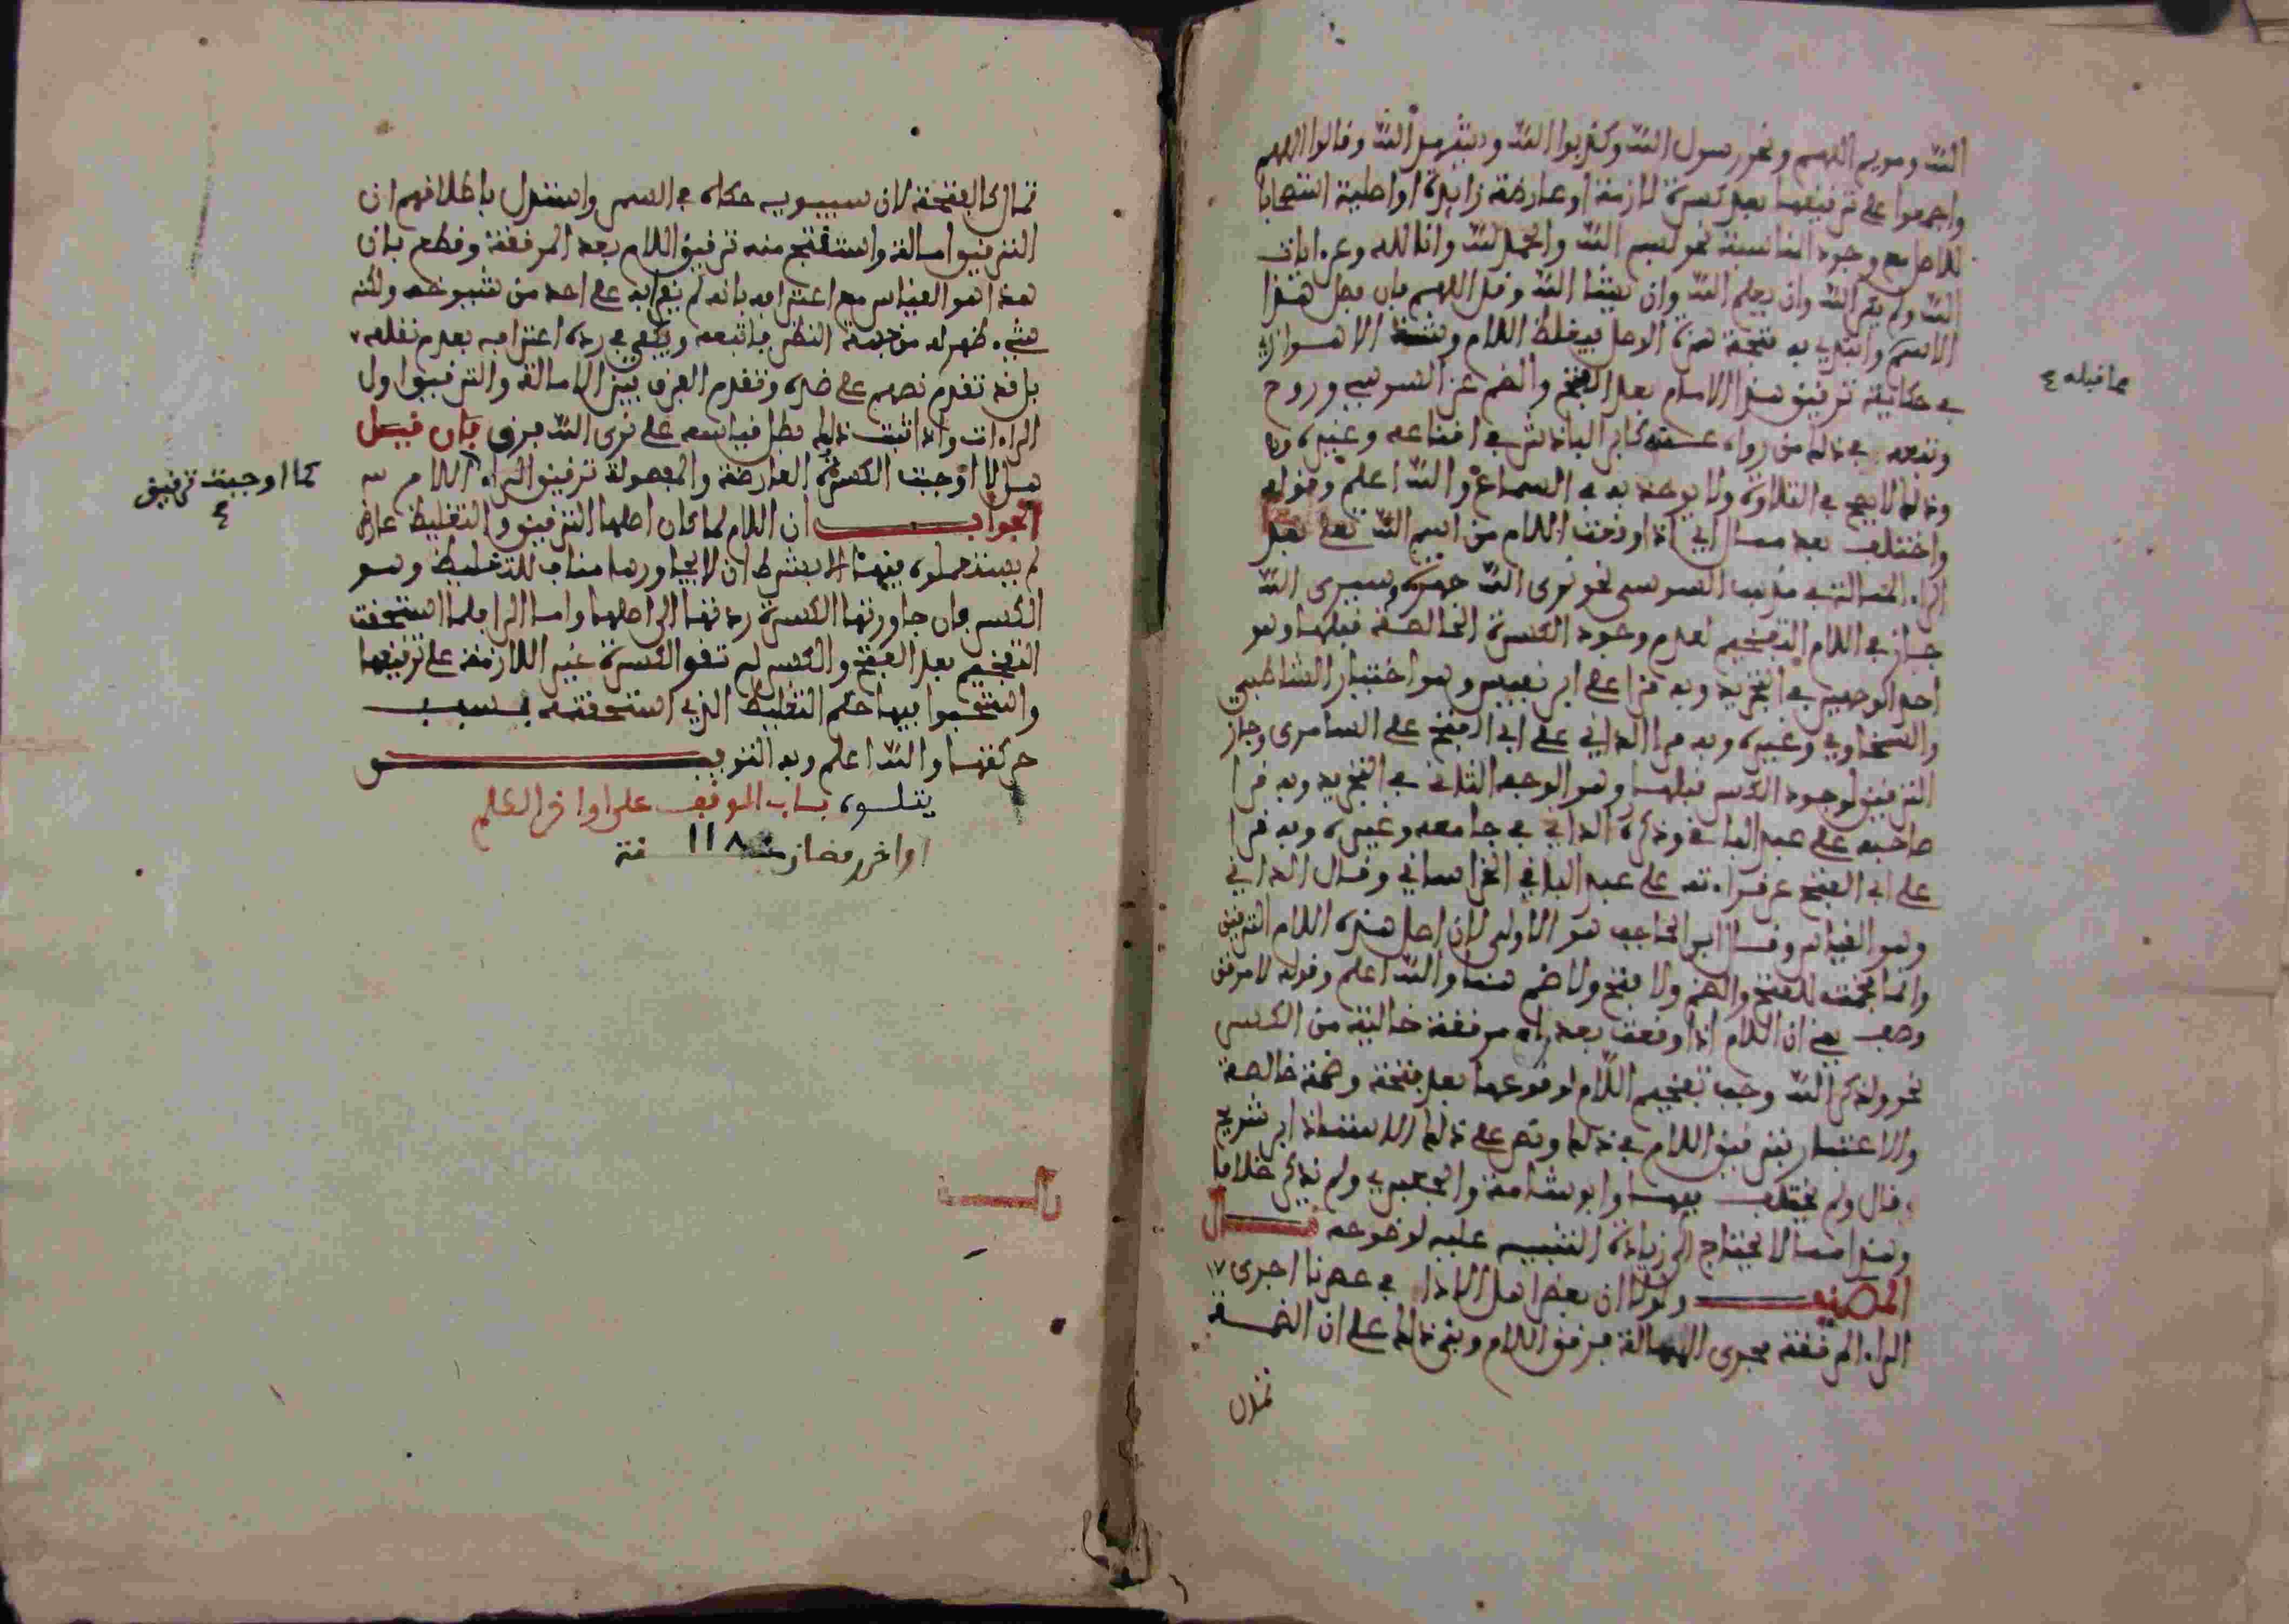 الله ومريم اللهم ونحو رسول الله وكذبوا الله ويشهد الله وقالوا اللهم
واجمعوا على ترقيقها بعد كسرة لازمة او عارضة زايدة او اصلية استصحابا
للاصل مع وجود المناسبة نحو بسم الله والحمد لله وانا لله وعن ايات
الله ولم يقر الله وان يعلم الله وان يشا الله وقل اللهم فان فصل هذا
الاسم وابتدي به فتحت همزة الوصل فيغلظ اللام وشذ الاهوازي
في حكاية ترقيق هذا الاسم بعد الفتح والضم عن السوسي وروح
وتبعه في ذلك من رواه عنه كابن الباذش في اقناعه وغيره
وذلك لا يصح في التلاوة ولا يوخذ به في السماع والله اعلم وقوله
واختلف بعد ممال اي اذا وقعت اللام من اسم الله تعلى بعد
الراء الممالة في مذهب السوسي نحو نرى الله جهرة وسيرى الله
جاز في اللام التفخيم لعدم وجود الكسرة الخالصة قبلها وهو
احد الوجهين في التجريد وبه قرا على ابن نفيس وهو اختيار الشاطبي
والسخاوي وغيره وبه قرا الداني على ابي الفتح على السامري وجاز
الترقيق لوجود الكسر قبلها وهو الوجه الثاني في التجريد وبه قرا
صاحبه على عبد الباقي وذكره الداني في جامعه وغيره وبه قرا
على ابي الفتح عن قراءته على عبد الباقي الخراساني وقال الداني
وهو القياس وقال ابن الحاجب هو الاولى لان اصل هذه اللام الترقيق
وانما فخمت للفتح والضم ولا فتح ولا ضم هنا والله اعلم وقوله لا مرقق
وصف يعني ان اللام اذا وقعت بعد راء مرققة خالية من الكسر
نحو ولذكر الله وجب تفخيم اللام لوقوعها بعد فتحة وضمة خالصة
والاعتبار بترقيق اللام في ذلك ونص على ذلك الاستاذ ابن شريح
قال ولم يختلف فيها وابو شامة والجعبري ولم يذكر خلافا
وهذا مما لا يحتاج الى زيادة التنبيه عليه لوضوحه قال
المصنف ولولا ان بعض اهل الادا في عصرنا اجرى
الراء المرققة مجرى الممالة فرقق اللام وبنى ذلك على ان الضمة
تمال
مما قبله ع
تمال كالفتحة لان سيبويه حكاه في السمر واستدل باطلاقهم ان
الترقيق امالة واستنتج منه ترقيق اللام بعد المرققة وقطع بان
هذا هو القياس مع اعترافه بانه لم يقرا به على احد من شيوخه ولكنه
شيء ظهر له من جهة النظر فاتبعه ويكفي في رده اعترافه بعدم نقله
بل قد تقدم نصهم على ضده وتقدم الفرق بين الامالة والترقيق اول
الراءات واذا ثبت ذلك بطل قياسه على نرى الله فرق فان قيل
هل لا اوجبت الكسرة العارضة والمفصولة ترقيق الراء اللام
الجواب ان اللام لما كان اصلها الترقيق والتغليظ عارض
لم يستعملوه فيها الا بشرط ان لا يجاورها مناف للتغليظ وهو
الكسر فان جاورتها الكسرة ردتها الى اصلها واما الرا فلما استحقت
التفخيم بعد الفتح والكسر لم تقو الكسرة غير اللازمة على ترقيقها
واستصحبوا فيها حكم التغليظ الذي استحقته بسبب
حركتها والله اعلم وبه التوفيق
يتلوه باب الوقف على اواخر الكلم
اواخر رمضان سنة 118
كما اوجبت ترقيق
ع